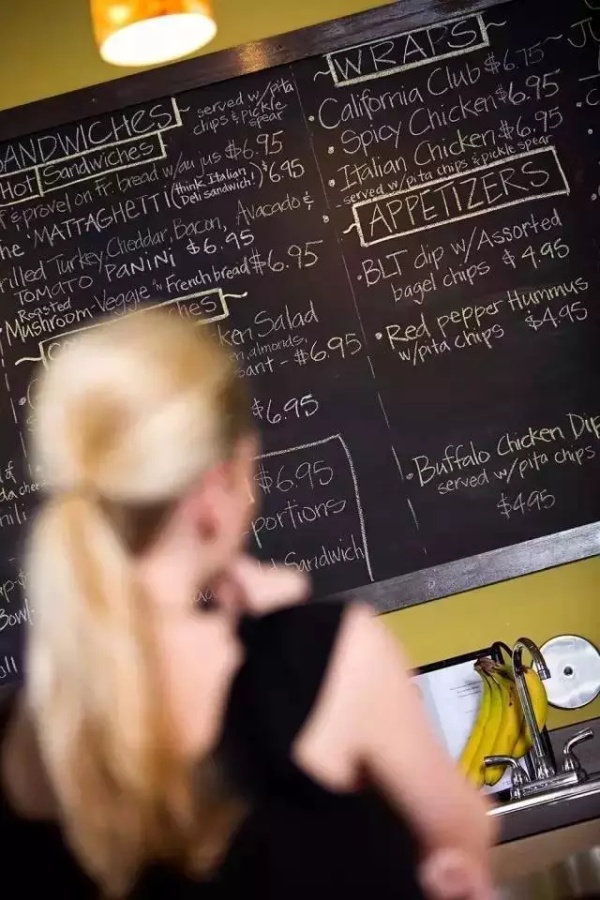 SANDWICHES
served w/pita
chips & pickle
spear
Hot Sandwiches
& provel on Fr. bread w/au jus $6.95
"MATTAGHETTI" (think Italian Deli sandwich!) $6.95
Turkey, Cheddar, Bacon, Avacado &
TOMATO PANINI $6.95
Roasted
Mushroom-Veggie 'N French bread $6.95
Salad
almonds,
- $6.95
$6.95
$6.95
portions
Sandwich
WRAPS
• California Club $6.75
• Spicy Chicken $6.95
• Italian Chicken $6.95
served w/pita chips & pickle spear
APPETIZERS
• BLT dip w/Assorted
bagel chips $4.95
• Red pepper Hummus
w/pita chips $4.95
• Buffalo Chicken Dip
served w/pita chips
$4.95